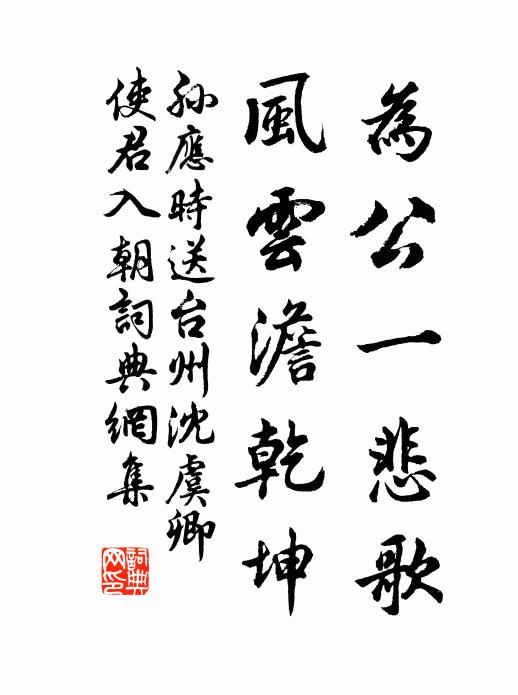 為公一悲歌
風雲澹乾坤
孫應時送台州沈虞卿
使君入朝詞典網集
詞典网印